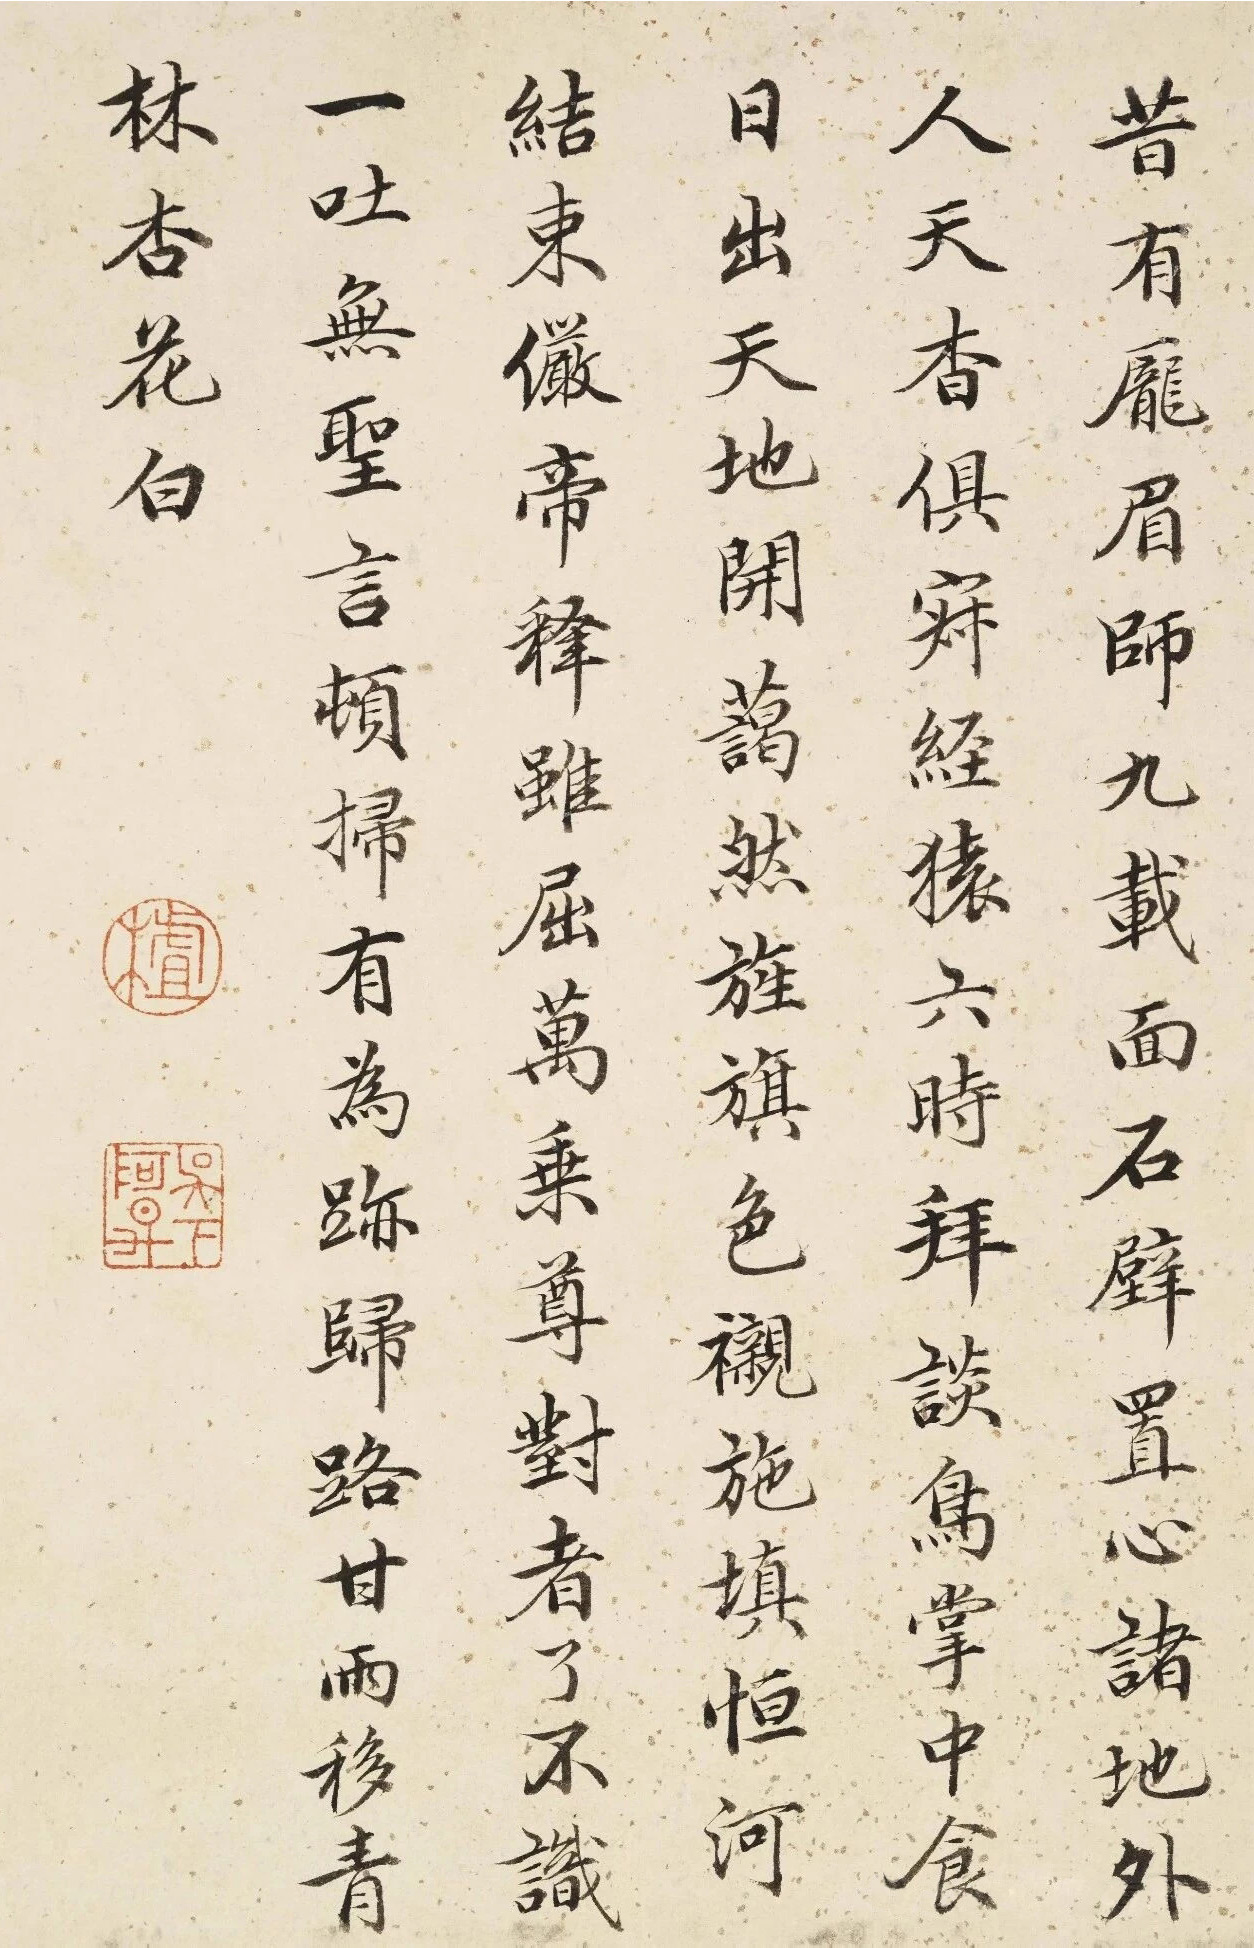 昔有龐眉師九載面石壁置心諸地外
人天杳俱寂經猿六時拜談鳥掌中食
日出天地開藹然旌旗色襯施填恒河
結束儼帝釋雖屈萬乘尊對者了不識
一吐無聖言頓掃有為跡歸路甘雨移青
林杏花白